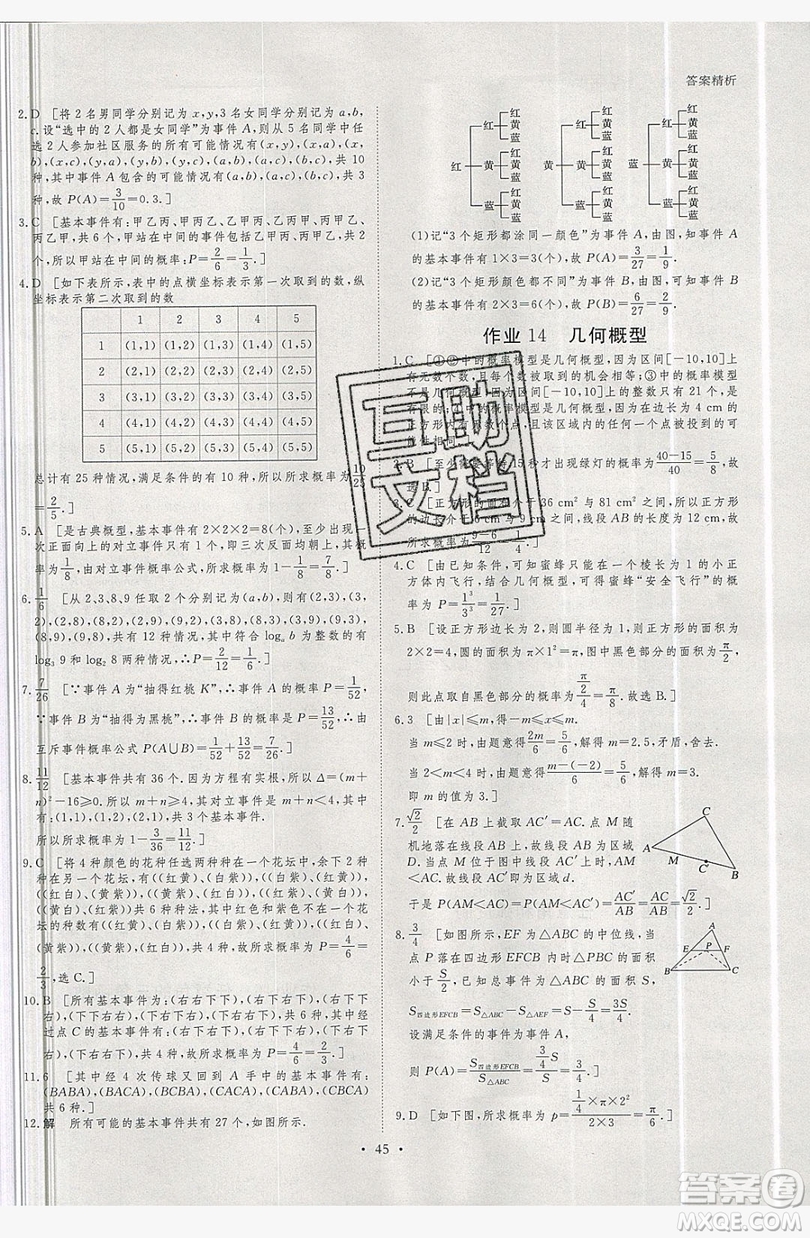 答案精析
2.D [将 2 名男同学分别记为 x,y,3 名女同学分别记为 a,b,
c.设“选中的 2 人都是女同学”为事件 A,则从 5 名同学中任
选 2 人参加社区服务的所有可能情况有(x,y),(x,a),
(x,b),(x,c),(y,a),(y,b),(y,c),(a,b),(a,c),(b,c),共 10
种,其中事件 A 包含的可能情况有(a,b),(a,c),(b,c),共 3
种,故 P(A)=3/10=0.3.]
3.C [基本事件有:甲乙丙、甲丙乙、乙甲丙、乙丙甲、丙甲乙、
丙乙甲,共 6 个,甲站在中间的事件包括乙甲丙、丙甲乙,共 2
个,所以甲站在中间的概率:P=2/6=1/3.]
4.D [如下表所示,表中的点横坐标表示第一次取到的数,纵
坐标表示第二次取到的数
1 2 3 4 5
1 (1,1) (1,2) (1,3) (1,4) (1,5)
2 (2,1) (2,2) (2,3) (2,4) (2,5)
3 (3,1) (3,2) (3,3) (3,4) (3,5)
4 (4,1) (4,2) (4,3) (4,4) (4,5)
5 (5,1) (5,2) (5,3) (5,4) (5,5)
总计有 25 种情况,满足条件的有 10 种,所以所求概率为10/25
=2/5.]
5.A [是古典概型,基本事件有 2×2×2=8(个),至少出现一
次正面朝上的对立事件是三次反面均朝上,其基本事件个数
为1/8,由对立事件概率公式,所求概率为1-1/8=7/8.]
6.1/6 [从 2,3,8,9 任取 2 个分别记为(a,b),则有(2,3),(3,
2),(2,8),(8,2),(2,9),(9,2),(3,8),(8,3),(3,9),(9,3),
(8,9),(9,8),共有 12 种情况,符合 logₐ b 为整数的有
log₃ 9 和 log₂ 8 两种情况,∴P=2/12=1/6.]
7.7/26 [∵事件 A 为“抽得红桃 K”,∴事件 A 的概率 P=1/52,
∵事件 B 为“抽得为黑桃”,∴事件 B 的概率 P=13/52,∴由
互斥事件概率公式 P(A∪B)=1/52+13/52=14/52=7/26.]
8.11/12 [基本事件共有 36 个.因为方程有实根,所以 Δ=(m+
n)²-16≥0.所以 m+n≥4,其对立事件是 m+n<4,其中
有:(1,1),(1,2),(2,1),共 3 个基本事件.所以所求概率为
1-3/36=11/12.]
9.C [将 4 种颜色的花种任选两种种在一个花坛中,余下 2 种
种在另一个花坛,有((红黄)、(白紫)),((白紫)、(红黄)),
((红白)、(黄紫)),((黄紫)、(红白)),((红紫)、(黄白)),
((黄白)、(红紫))共 6 种种法,其中红色和紫色的花不在同
一个花坛的种数有((红黄)、(白紫)),((白紫)、(红黄)),((红白)、
(黄紫)),((黄紫)、(红白)),共 4 种,故所求概率为 P=4/6=
2/3,选 C.]
10.B [所有基本事件为:(右右下下),(右下右下),(右下下
右),(下下右右),(下右下右),(下右右下)共 6 种,其中经
过点 C 的基本事件有:(右下右下),(右下下右),(下右下
右),(下右右下),共 4 种,所以所求概率为 P=4/6=2/3.]
11.6 [其中经 4 次传球又回到 A 手中的基本事件有:
(BABA),(BACA),(BCBA),(CACA),(CABA),(CBCA)
共 6 种.]
12.解 所有可能的基本事件共有 27 个,如图所示.
红 红 红 黄 蓝
黄 红 黄 蓝
蓝 红 黄 蓝
黄 红 红 黄 蓝
黄 红 黄 蓝
蓝 红 黄 蓝
蓝 红 红 黄 蓝
黄 红 黄 蓝
蓝 红 黄 蓝
(1)记“3 个矩形都涂同一颜色”为事件 A,由图可知,事件 A
的基本事件有 1×3=3(个),故 P(A)=3/27=1/9.
(2)记“3 个矩形颜色都不同”为事件 B,由图可知,事件 B
的基本事件有 2×3=6(个),故 P(B)=6/27=2/9.
作业 14 几何概型
1.C [①②中的概率模型是几何概型,因为区间[-10,10]上
有无数个数,且每个数被取到的机会相等;③中的概率模型
不是几何概型,因为区间[-10,10]上的整数只有 21 个,是
有限的;④中的概率模型是几何概型,因为在边长为 4 cm 的
正方形和其内部有无数个点,且该区域内的任何一个点被投到的可
能性相同.]
2.B [至少需要等待 15 秒才出现绿灯的概率为40-15/40=5/8,故
选 B.]
3. [正方形的面积介于 36 cm² 与 81 cm² 之间,所以正方形
的边长介于 6 cm 与 9 cm 之间,线段 AB 的长度为 12 cm,故
所求概率为9-6/12=1/4.]
4.C [由已知条件,可知蜜蜂只能在一个棱长为 1 的小正
方体内飞行,结合几何概型,可得蜜蜂“安全飞行”的概
率为 P=1³/3³=1/27.]
5.B [设正方形边长为 2,则圆半径为 1,则正方形的面积为
2×2=4,圆的面积为 π×1²=π,图中黑色部分的面积为π/2,
则此点取自黑色部分的概率为π/2/4=π/8.故选 B.]
6.3 [由|x|≤m,得-m≤x≤m.
当 m≤2 时,由题意得2m/6=5/6,解得 m=2.5,矛盾,舍去.
当 2<m<4 时,由题意得m-(-2)/6=5/6,解得 m=3.
即 m 的值为 3.]
7.√2/2 [在 AB 上截取 AC′=AC.点 M 随
机地落在线段 AB 上,故线段 AB 为区域
D.当点 M 位于线段 AC′上时,AM
<AC,故线段 AC′即为区域 d.
于是 P(AM<AC)=P(AM<AC′)=AC′/AB=AC/AB=√2/2.]
A M C′ B C
8.3/4 [如图所示,EF 为△ABC 的中位线,当
点 P 落在四边形 EFCB 内时,△PBC 的面积
小于S/2,已知总事件为△ABC 的面积 S,
S四边形EFCB=S-S△AEF=S-S/4=3S/4.
A E P F B C
设满足条件的事件为事件 A,
则 P(A)=S四边形EFCB/S△ABC=3/4S/S=3/4.]
9.D [如下图,所求概率为 p=1/4×π×2²/2×3=π/6.
• 45 •
互助文档
答案圈
MXQE.COM